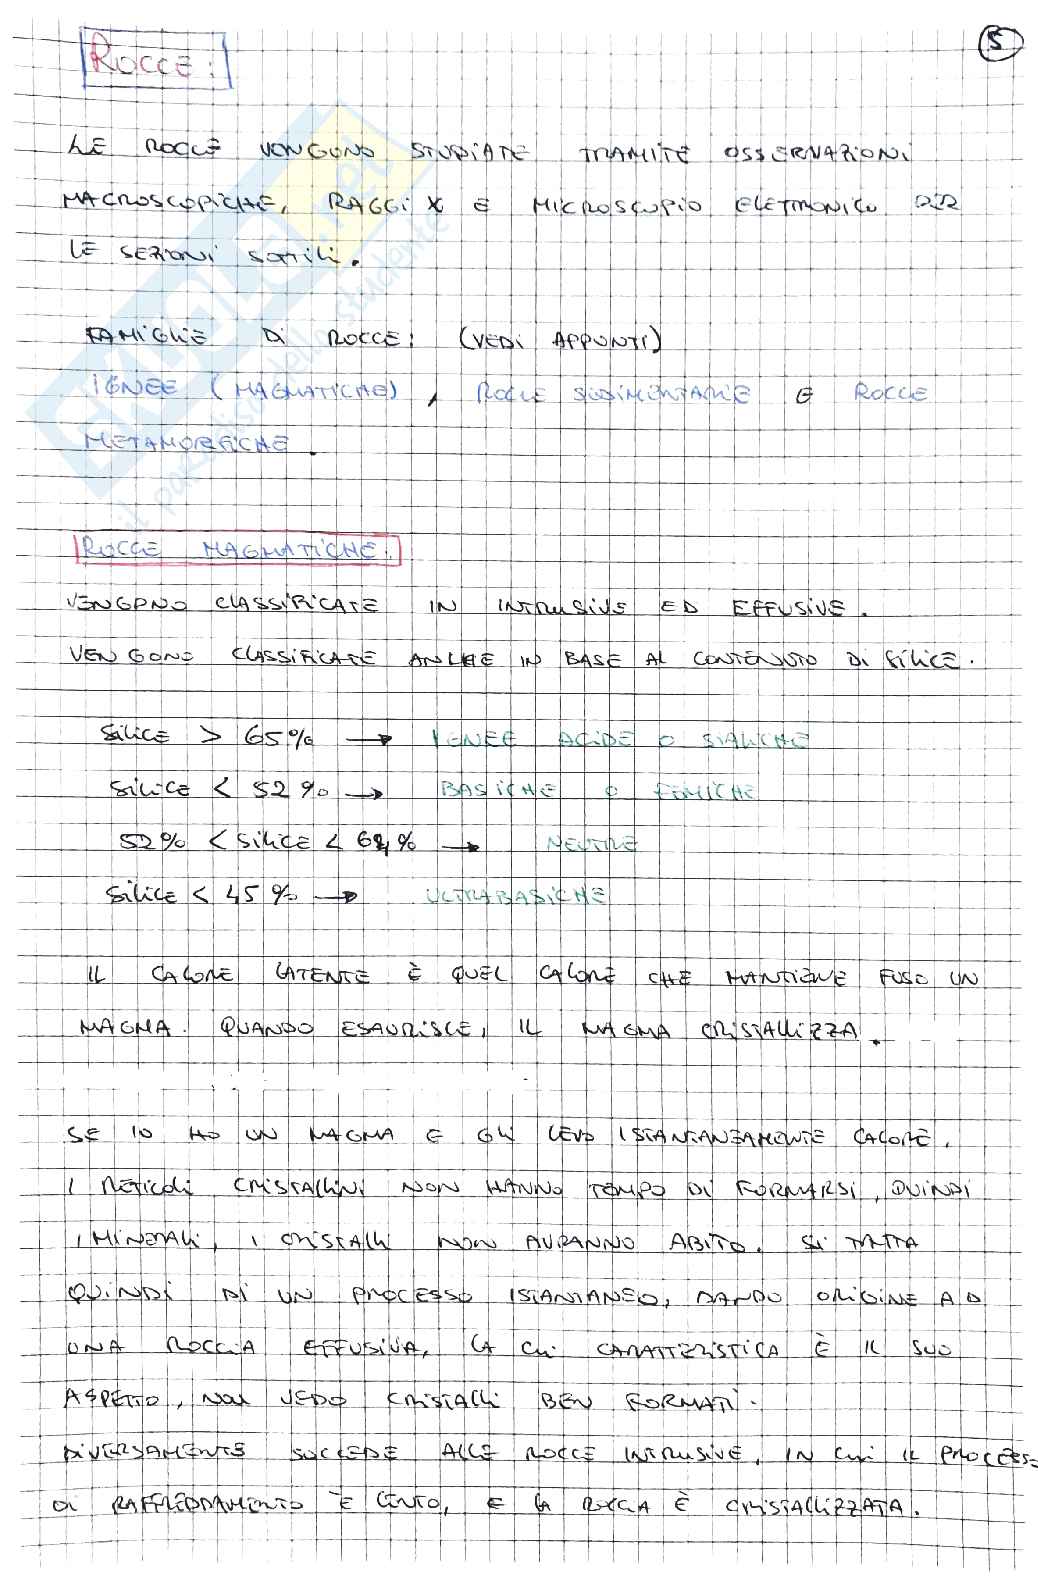 5
ROCCE:
LE ROCCE VENGONO STUDIATE TRAMITE OSSERVAZIONI
MACROSCOPICHE, RAGGI X E MICROSCOPIO ELETTRONICO PER
LE SEZIONI SOTTILI.
FAMIGLIE DI ROCCE: (VEDI APPUNTI)
IGNEE (MAGMATICHE), ROCCE SEDIMENTARIE E ROCCE
METAMORFICHE.
ROCCE MAGMATICHE:
VENGONO CLASSIFICATE IN INTRUSIVE ED EFFUSIVE.
VENGONO CLASSIFICATE ANCHE IN BASE AL CONTENUTO DI SILICE.
SILICE > 65% → IGNEE ACIDE O SIALICHE
SILICE < 52% → BASICHE O FEMICHE
52% < SILICE < 64% → NEUTRE
SILICE < 45% → ULTRABASICHE
IL CALORE LATENTE È QUEL CALORE CHE MANTIENE FUSO UN
MAGMA. QUANDO ESAURISCE, IL MAGMA CRISTALLIZZA.
SE IO HO UN MAGMA E GLI LEVO ISTANTANEAMENTE CALORE,
I RETICOLI CRISTALLINI NON HANNO TEMPO DI FORMARSI, QUINDI
I MINERALI, I CRISTALLI NON AVRANNO ABITO. SI TRATTA
QUINDI DI UN PROCESSO ISTANTANEO, DANDO ORIGINE AD
UNA ROCCIA EFFUSIVA, LA CUI CARATTERISTICA È IL SUO
ASPETTO, NON VEDO CRISTALLI BEN FORMATI.
DIVERSAMENTE SUCCEDE ALLE ROCCE INTRUSIVE, IN CUI IL PROCESSO
DI RAFFREDDAMENTO È LENTO, E LA ROCCIA È CRISTALLIZZATA.
SKUOLA.net
il paradiso dello studente